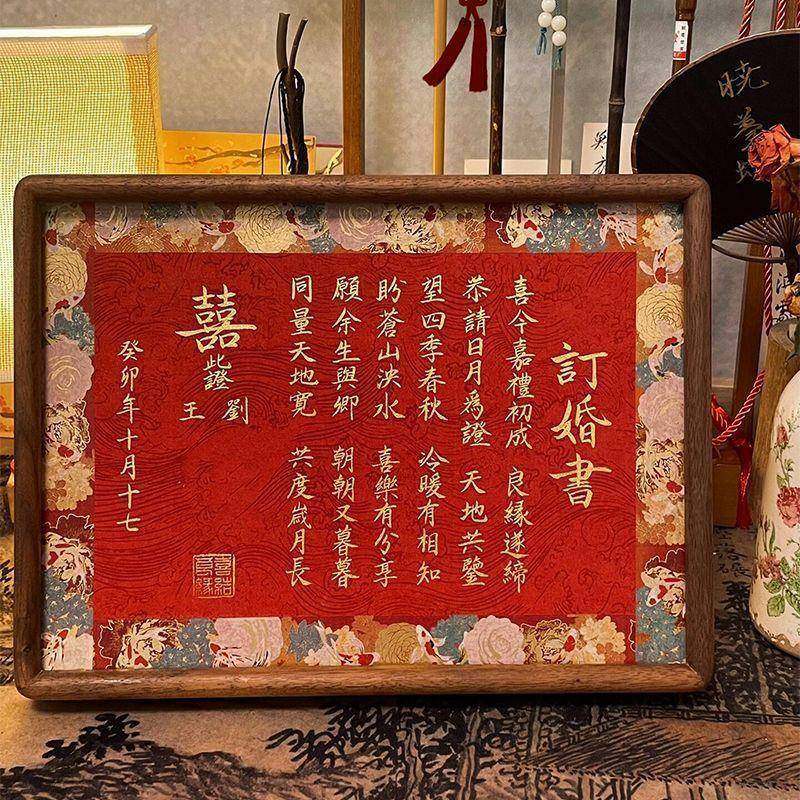 訂婚書
喜今嘉禮初成 良緣遂締
恭請日月爲證 天地共鑒
望四季春秋 冷暖有相知
盼蒼山泱水 喜樂有分享
願余生與卿 朝朝又暮暮
同量天地寬 共度歲月長
囍
此證
劉
王
癸卯年十月十七
喜結良緣